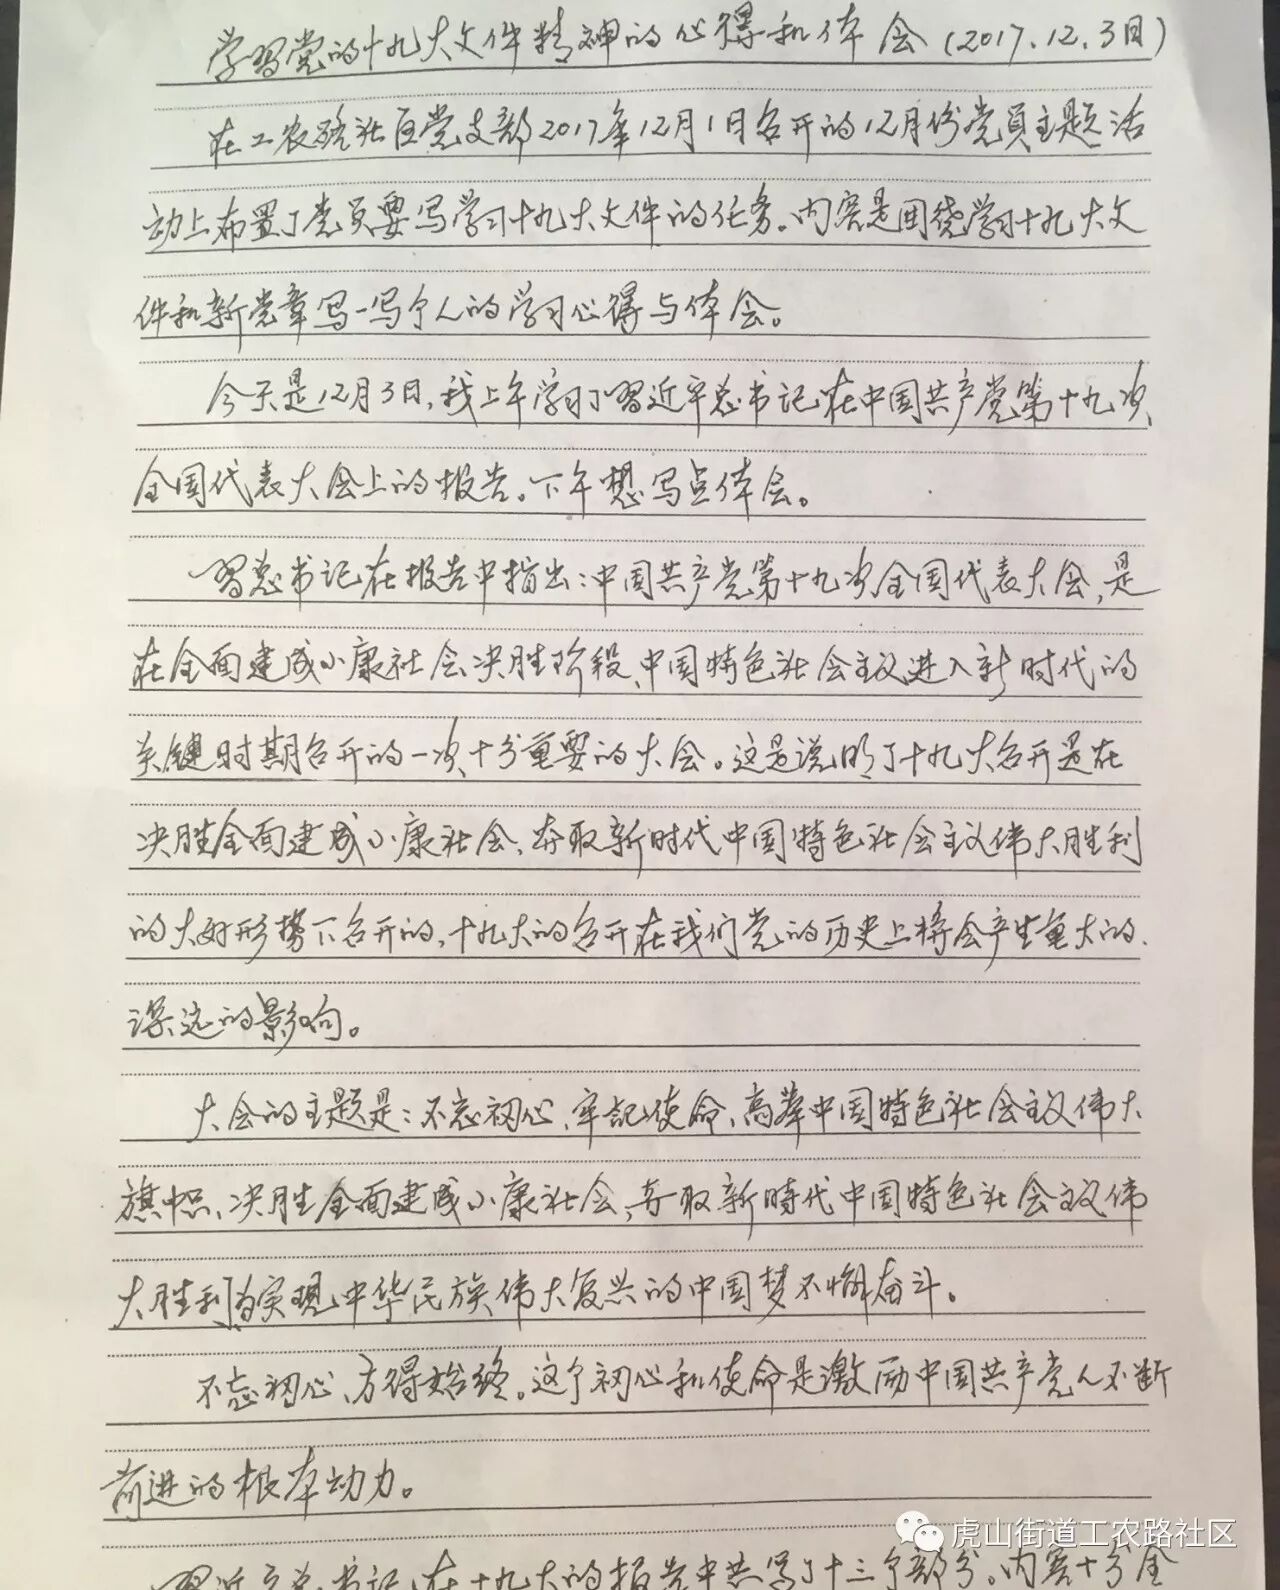 学习党的十九大文件精神的心得和体会(2017.12.3日)
在工农路社区党支部2017年12月1日召开的12月份党员主题活
动上布置了党员要写学习十九大文件的任务。内容是围绕学习十九大文
件和新党章写一写个人的学习心得与体会。
今天是12月3日,我上午学习了习近平总书记在中国共产党第十九次
全国代表大会上的报告。下午想写点体会。
习总书记在报告中指出:中国共产党第十九次全国代表大会,是
在全面建成小康社会决胜阶段、中国特色社会主义进入新时代的
关键时期召开的一次十分重要的大会。这是说明了十九大召开是在
决胜全面建成小康社会、夺取新时代中国特色社会主义伟大胜利
的大好形势下召开的,十九大的召开在我们党的历史上将会产生重大的、
深远的影响。
大会的主题是:不忘初心、牢记使命、高举中国特色社会主义伟大
旗帜、决胜全面建成小康社会,夺取新時代中国特色社会主义伟
大胜利为实现中华民族伟大复兴的中国梦不懈奋斗。
不忘初心、方得始终。这个初心和使命是激励中国共产党人不断
前进的根本动力。
习近平总书记在十九大的报告中共写了十三个部分。内容十分全
虎山街道工农路社区